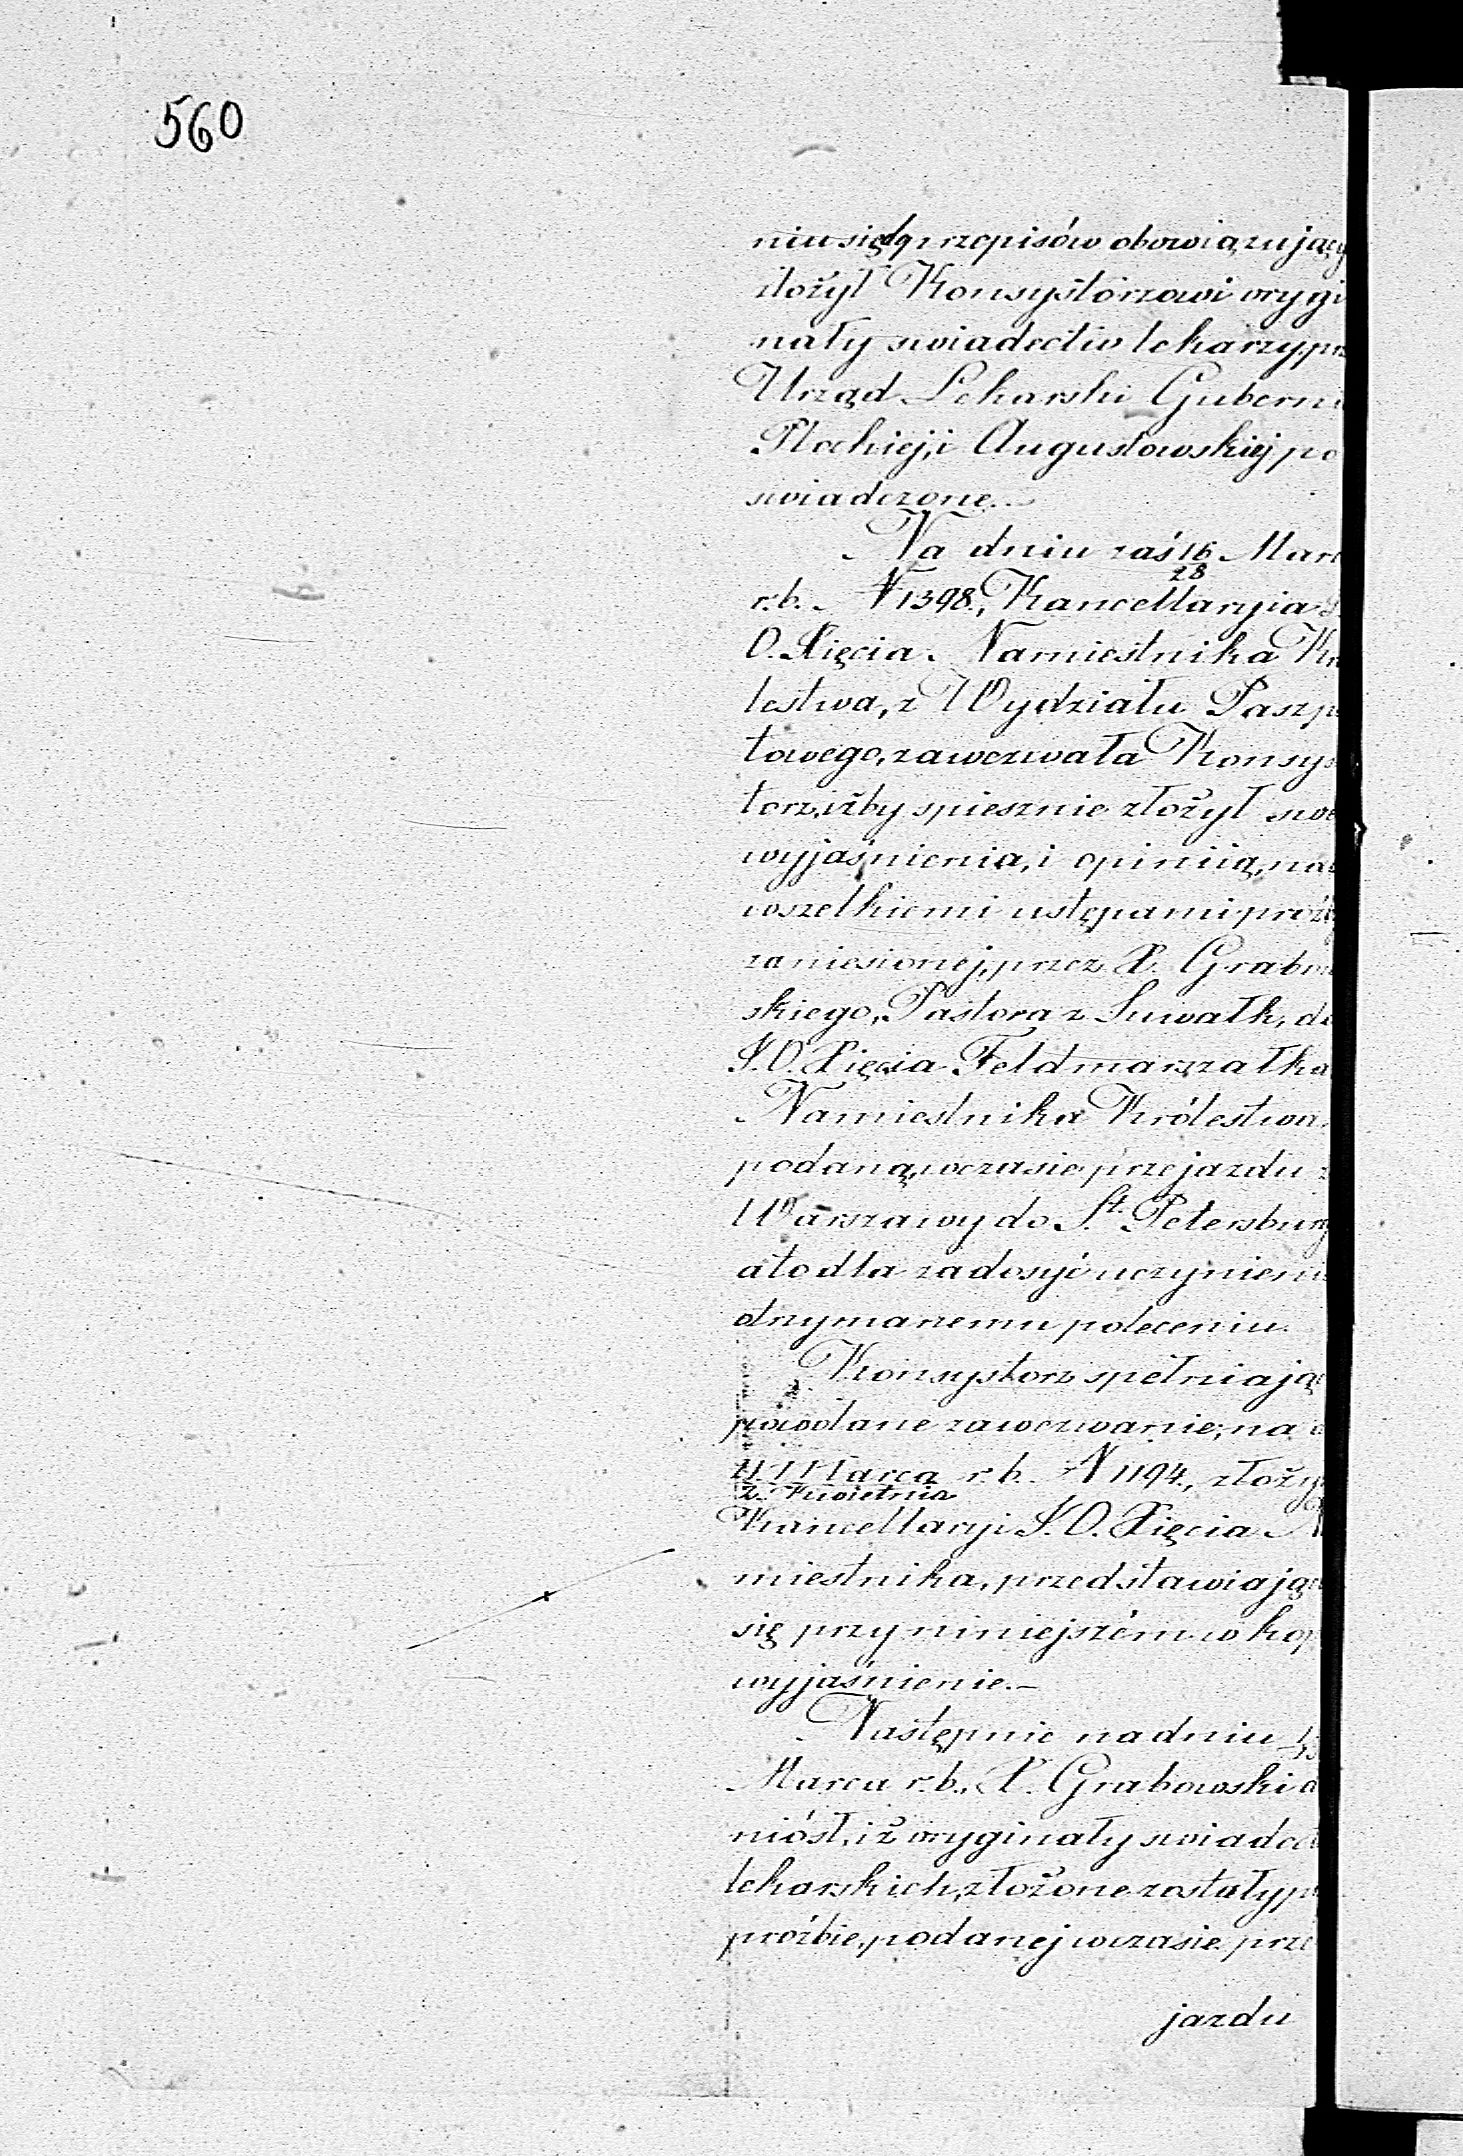 560
niu się d/g przepisów obowiązujący
złożył Konsystorzowi orygi
nały swiadectw lekarzy, prz
Urząd Lekarski Guberni
Płockiej, i Augustowskiej po
swiadczone.-
Na dniu zaś 16/28 Marc
r.b. N 1398., Kancellaryia J
O. Xięcia Namiestnika Kró
lestwa, z Wydziału Paszp
towego, zawezwała Konsys
torz, iżby spiesznie złożył swe
wyjaśnienia, i opiniią, nad
wszelkiemi ustępami proźb
zaniesionej, przez X. Grabow
skiego, Pastora z Suwałk, do
J.O. Xięcia Feldmarszałka
Namiestnika Królestwa,
podaną, wczasie przejazdu z
Warszawy do St. Petersburg
a to dla zadosyć uczynieni
otrzymanemu poleceniu.
Konsystorz spełniając
powołane zawezwanie, na d
21. Marca / 2. Kwietnia r.b. N 1194., złoży
Kancellaryi J.O. Xięcia N
miestnika, przedstawiając
się przy niniejszém w kop
wyjaśnienie.-
Następnie na dniu
Marca r.b., X. Grabowski d
niósł, iż oryginały swiadect
lekarskich, złożone zostały p
proźbie, podanej wczasie prze
jazdu